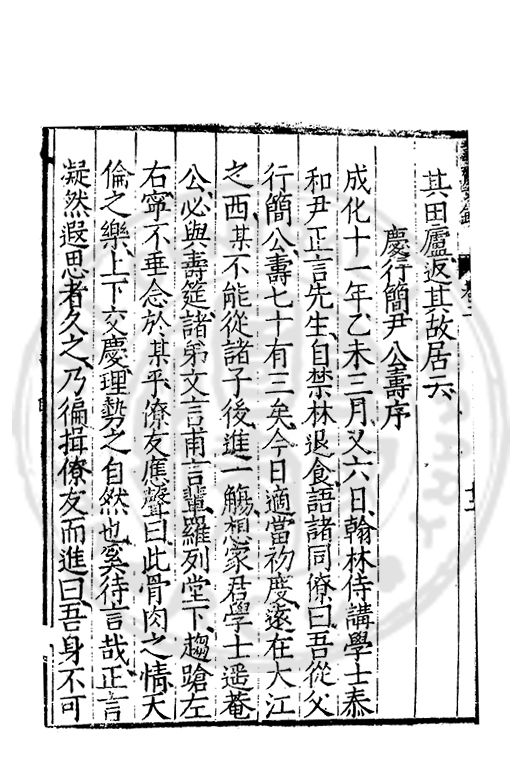 其田廬返其故居云
慶行簡尹公壽序
成化十一年乙未三月又六日翰林侍講學士泰
和尹正言先生自禁林退食語諸同僚曰吾從父
行簡公壽七十有三矣今日適當初度遠在大江
之西某不能從諸子後進一觴想家君學士遥菴
公必與壽筵諸弟文言甫言輩羅列堂下趨蹌左
右寧不垂念於某乎僚友應聲曰此骨肉之情天
倫之樂上下交慶理勢之自然也奚待言哉正言
凝然遐思者久之乃徧揖僚友而進曰吾身不可